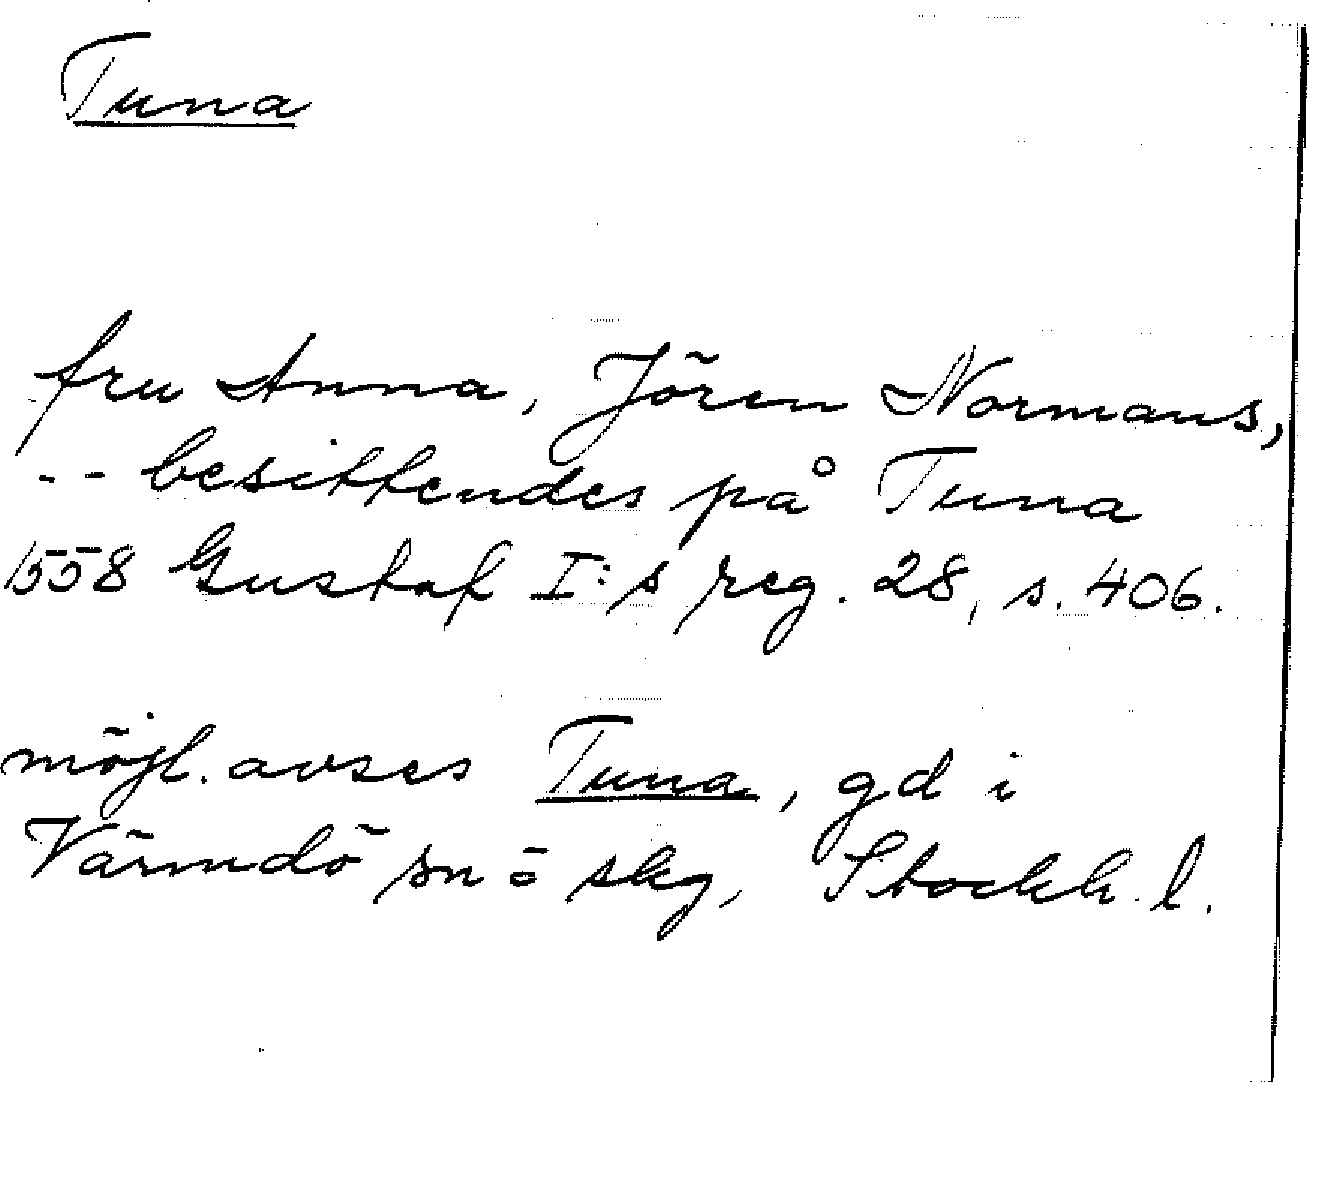 Tuna
fru Anna, Jören Normans,
-- besittendes på Tuna
1558 Gustaf I:s reg. 28, s. 406.
möjl. avses Tuna, gd i
Värmdö sn o skg, Stockh. l.